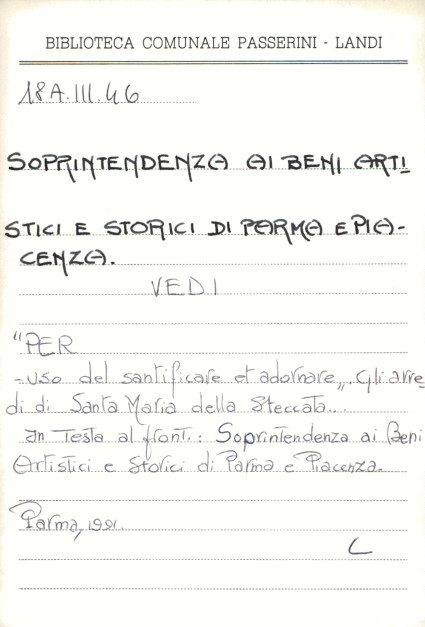 BIBLIOTECA COMUNALE PASSERINI - LANDI
18A.III.46
SOPRINTENDENZA AI BENI ARTI
STICI E STORICI DI PARMA E PIA-
CENZA.
VEDI
"PER
-uso del santificare et adornare„. Gli arre
di di Santa Maria della Steccata...
In Testa al front.: Soprintendenza ai Beni
Artistici e Storici di Parma e Piacenza.
Parma, 1991.
L